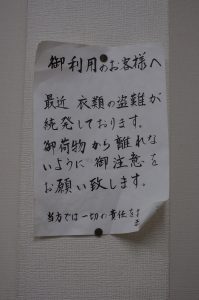 御利用のお客様へ
最近 衣類の盗難が
続発しております。
御荷物から離れな
いように御注意を
お願い致します。
当方では一切の責任を